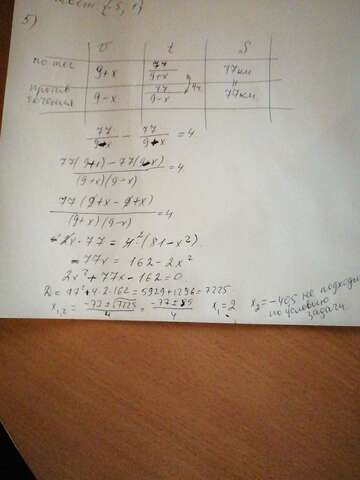 5)
v t S
по теч 9+x 77/9+x 77км
4ч
против течения 9-x 77/9-x 77км
77/9-x - 77/9+x = 4
77(9+x) - 77(9-x)/(9+x)(9-x) = 4
77(9+x-9+x)/(9+x)(9-x) = 4
2x·77 = 4²(81-x²)
77x = 162-2x²
2x²+77x-162=0
D = 77²+4·2·162 = 5929+1296=7225
x₁,₂ = -77±√7225/4 = -77±85/4 x₁=2 x₂=-40,5 не подходи
по условию
задачи